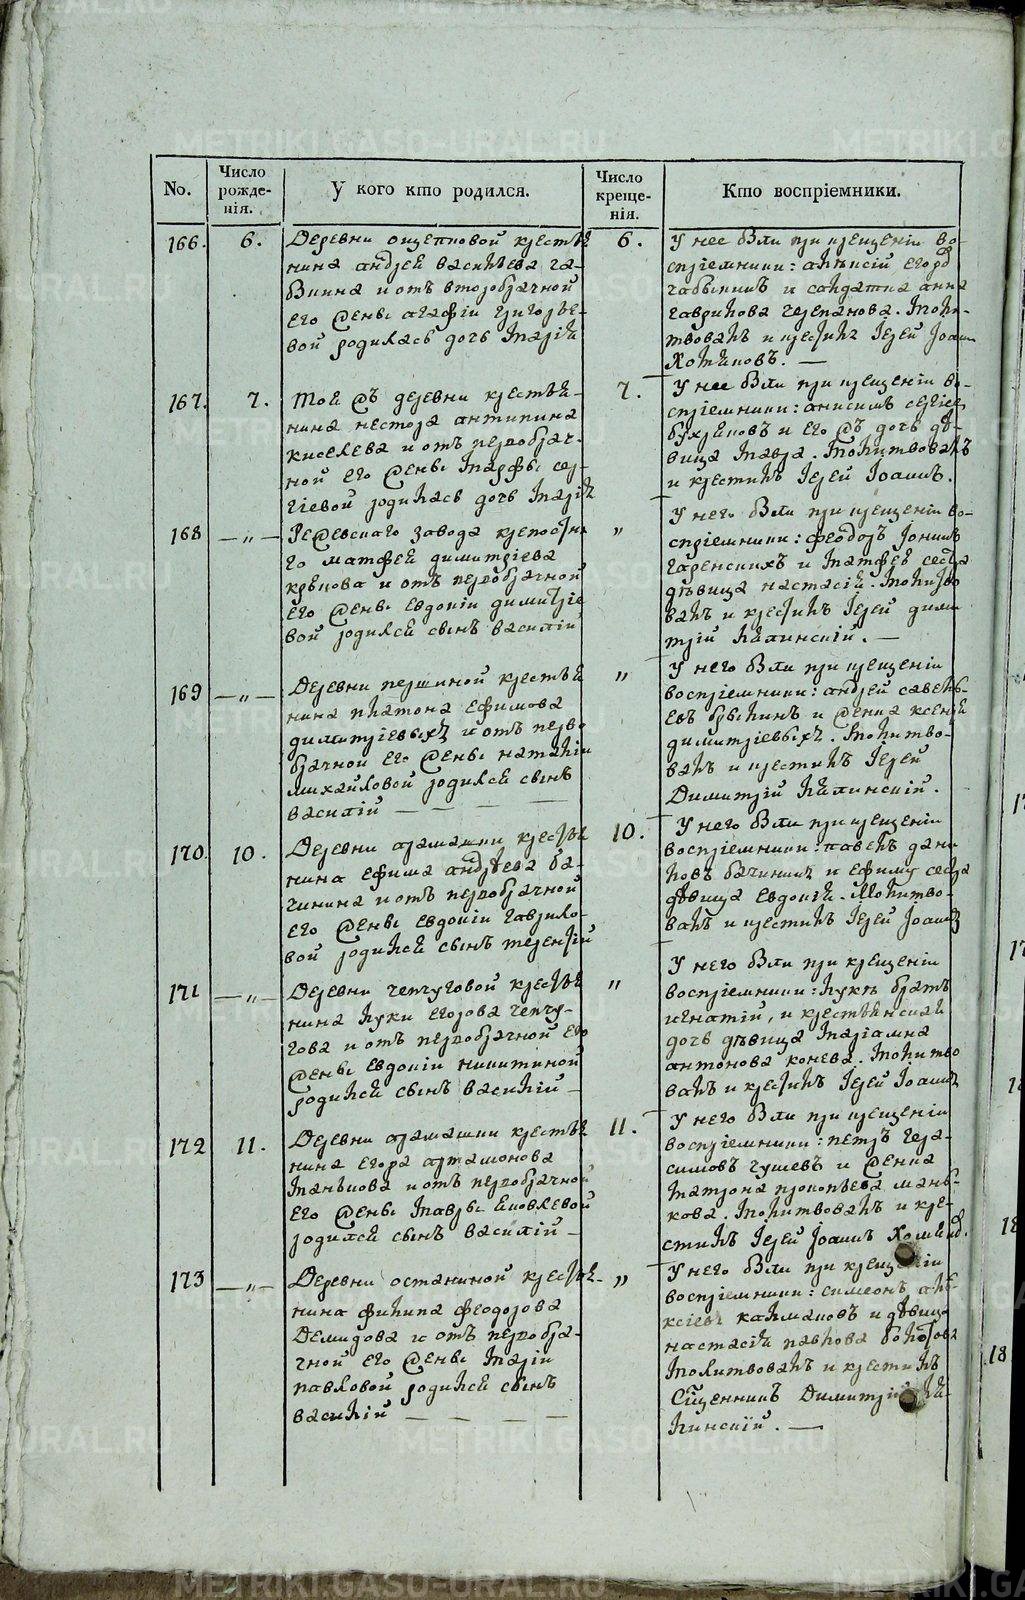 No.
Число рожде-
нія.
У кого кто родился.
Число креще-
нія.
Кто воспріемники.
166. 6.
Деревни ощепковой крестья
нина андрея васильева га-
и отъ второбрачной
его жены агафіи григорье-
вой родилась дочь Марія
6.
У нее были при крещеніи во-
спріемники: алексій егоров
и солдатка анна
гаврилова черепанова. Моли-
твовалъ и крестилъ Іерей Іоанн
Хотяновъ. —
167. 7.
Той жъ деревни крестья-
нина нестора антипина
киселева и отъ первобрач-
ной его жены Марфы сер-
гіевой родилась дочь Марія
7.
У нее были при крещеніи во-
спріемники: анисимъ сергіев
и его жъ дочь дѣ-
вица Мавра. Молитвовалъ
и крестилъ Іерей Іоаннъ.
168 — „ —
Режевскаго завода крепостна
го матфея димитріева
и отъ первобрачной
его жены евдокіи димитріе
вой родился сынъ василій
„
У него были при крещеніи во-
спріемники: феодоръ Іонинъ
и Матфея сестра
дѣвица настасія. Молитво
валъ и крестилъ Іерей дими
трій Калинскій. —
169 — „ —
Деревни першиной крестья
нина платона ефимова
димитріевыхъ и отъ перво
брачной его жены наталіи
михайловой родился сынъ
василій — — — —
„
У него были при крещеніи
воспріемники: андрей савель-
евъ брылинъ и жена ксенія
димитріевыхъ. Молитво-
валъ и крестилъ Іерей
Димитрій Калинскій.
170. 10.
Деревни арамашки крестья
нина ефима андреева ба-
чинина и отъ первобрачной
его жены евдокіи гаврило-
вой родился сынъ терентій
10.
У него были при крещеніи
воспріемники: павелъ дани
ловъ бачининъ и ефиму сестра
дѣвица евдокія. Молитво-
валъ и крестилъ Іерей Іоаннъ
171 — „ —
Деревни чепчуговой крестья
нина луки егорова чепчу-
гова и отъ первобрачной его
жены евдокіи никитиной
родился сынъ василій —
„
У него были при крещеніи
воспріемники: Лукѣ братъ
игнатій, и крестьянская
дочь дѣвица Маріамна
антонова конева. Молитво
валъ и крестилъ Іерей Іоаннъ
172 11.
Деревни арамашки крестья
нина егора артамонова
Манькова и отъ первобрачной
его жены Мавры яковлевой
родился сынъ василій —
11.
У него были при крещеніи
воспріемники: петръ гера-
симовъ гушевъ и жена
Матрона прокопьева мань-
кова. Молитвовалъ и кре-
стилъ Іерей Іоаннъ
173 — „ —
Деревни останиной крестья-
нина филипа феодорова
Демидова и отъ первобра-
чной его жены Маріи
павловой родился сынъ
василій — — — —
„
У него были при крещеніи
воспріемники: симеонъ але-
ксіевъ калмаковъ и дѣвица
настасія павлова
Молитвовалъ и крестилъ
Сщенникъ Димитрій Ка-
линскій. —